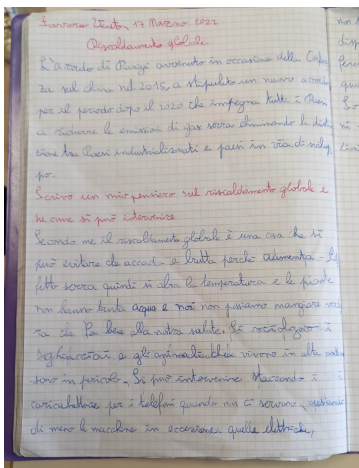 Lavoro Scritto, 17 Marzo 2022
Riscaldamento globale
L'accordo di Parigi avvenuto in occasione della
za sul clima nel 2015, a stipulato un nuovo accordo
per il periodo dopo il 2020 che impegna tutti i Paesi
a ridurre le emissioni di gas serra eliminando la
zione tra Paesi industrializzati e paesi in via di svilup
po.
Scrivo un mio pensiero sul riscaldamento globale e
se come si può intervenire
Secondo me il riscaldamento globale è una cosa che si
può evitare che accada e brutta perchè aumenta
fetto serra quindi si alza la temperatura e le piante
non hanno tanta acqua e noi non possiamo mangiare
ra che fa bene alla nostra salute. Si sciolgono i
ghiacciai e gli animali che vivono in
sono in pericolo. Si può intervenire staccando i
caricabatterie per i telefoni quando non ci servono, usando
di meno le macchine in eccezione quelle elettriche,